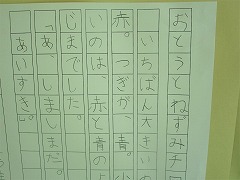 おとうとねずみチ
いちばん大きい
赤。つぎが、青。小
いのは、赤と青のよ
じまでした。
「あ、しましまだ。
あいすき。